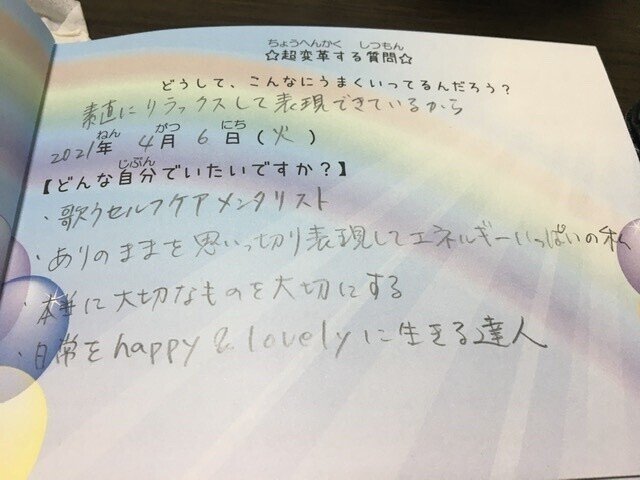 ちょうへんかく しつもん
☆超変革する質問☆
どうして、こんなにうまくいってるんだろう?
素直にリラックスして表現できているから
ねん がつ にち
2021年 4月 6日(火)
じぶん
【どんな自分でいたいですか?】
・歌うセルフケアメンタリスト
・ありのままを思いっ切り表現してエネルギーいっぱいの私
・本当に大切なものを大切にする
・日常をhappy & lovelyに生きる達人